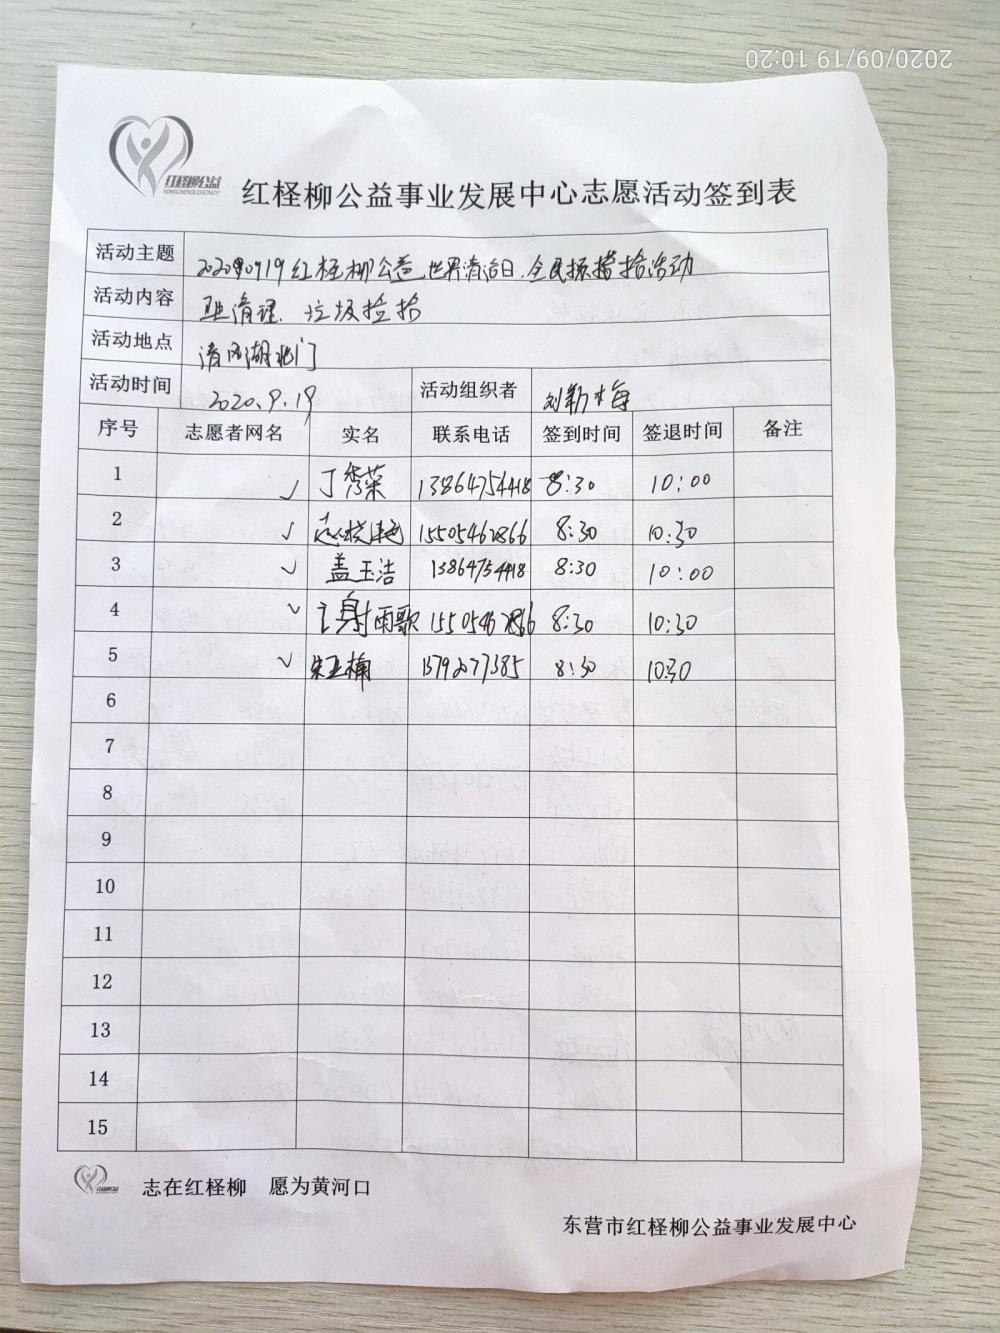 2020/09/19 10:20
红柽柳公益
HONGCHENGLIUGONGYI
红柽柳公益事业发展中心志愿活动签到表
活动主题 20200919红柽柳公益 世界清洁日.全民捡拾活动
活动内容 清理. 垃圾捡拾
活动地点 清风湖北门
活动时间 2020.9.19 活动组织者 刘勤梅
序号 志愿者网名 实名 联系电话 签到时间 签退时间 备注
1 ✓ 丁秀荣 13864754418 8:30 10:00
2 ✓ 15505462866 8:30 10:30
3 ✓ 盖玉洁 13864754418 8:30 10:00
4 ✓ 谢雨歌 15505462866 8:30 10:30
5 ✓ 宋亚楠 8:30 10:30
6
7
8
9
10
11
12
13
14
15
志在红柽柳 愿为黄河口
东营市红柽柳公益事业发展中心